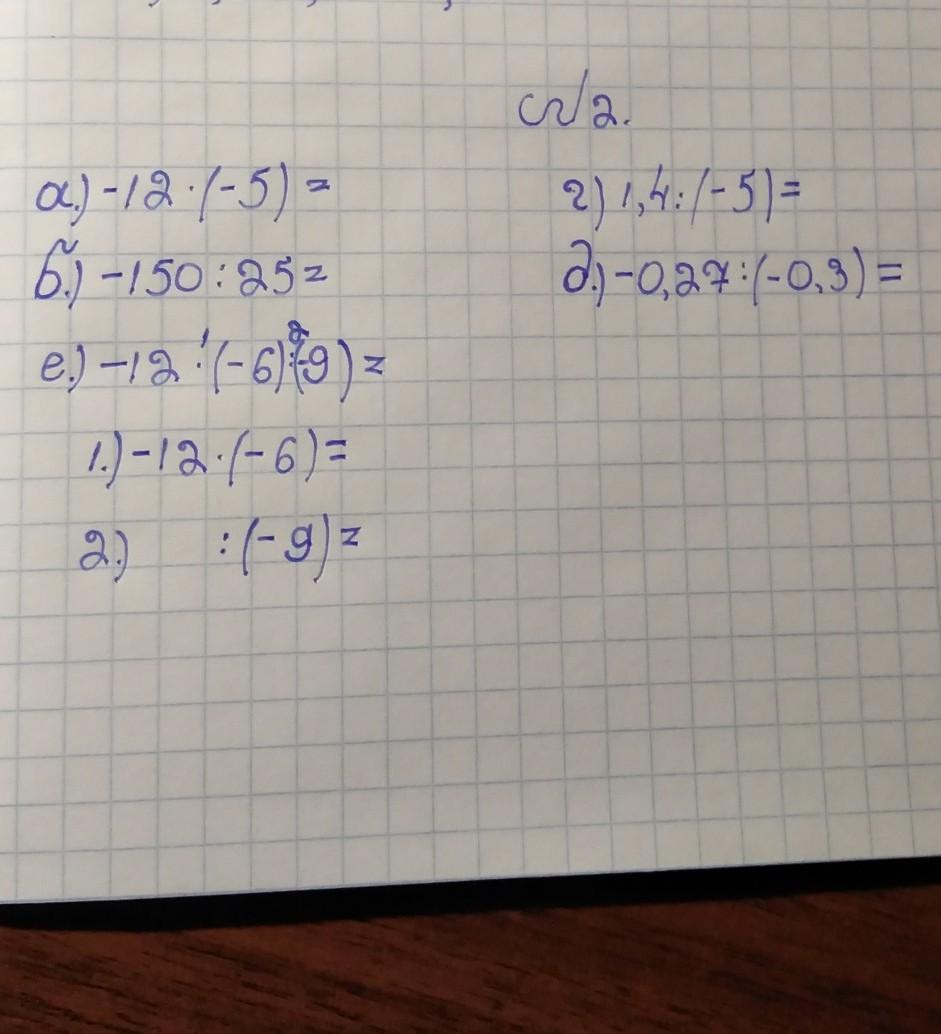 с/2.
а.) -12 · (-5) =
б.) -150 : 25 =
е.) -12 · (-6) : (-9) =
1 2
1.) -12 · (-6) =
2.) : (-9) =
г) 1,4 : (-5) =
д.) -0,27 : (-0,3) =